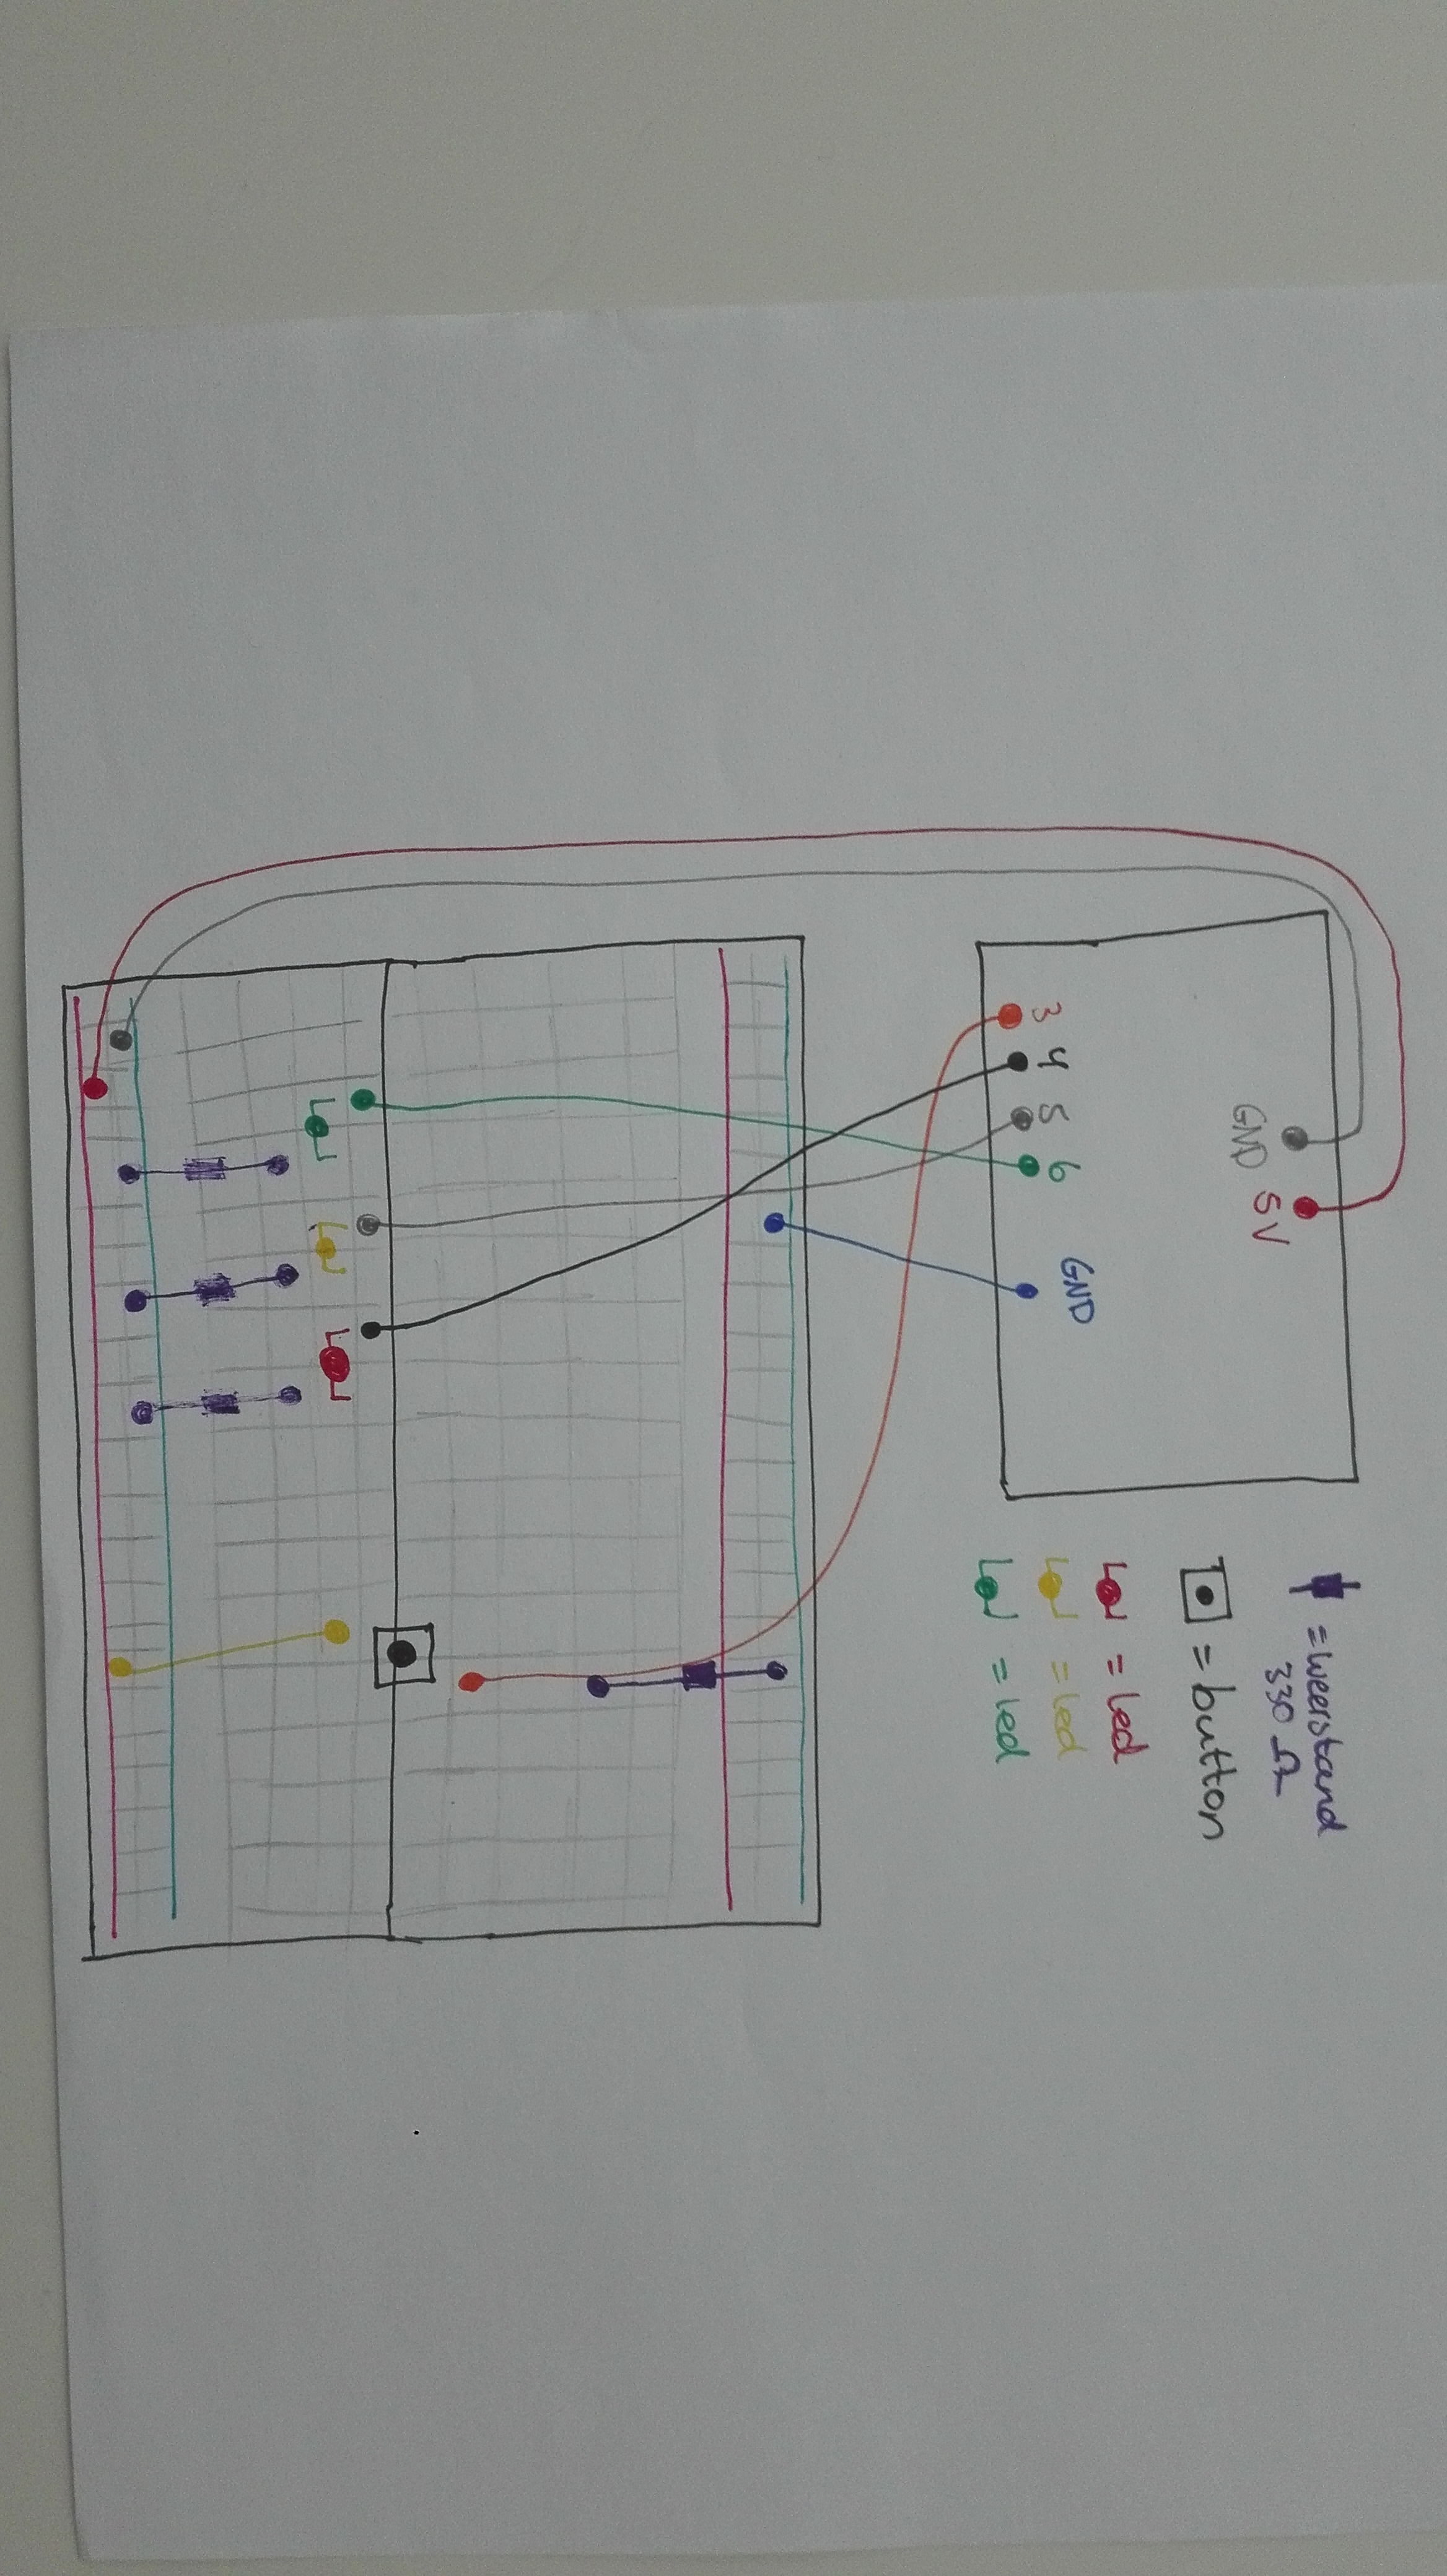 GND
5V
3
4
5
6
GND
= weerstand
330 Ω
= button
= led
= led
= led